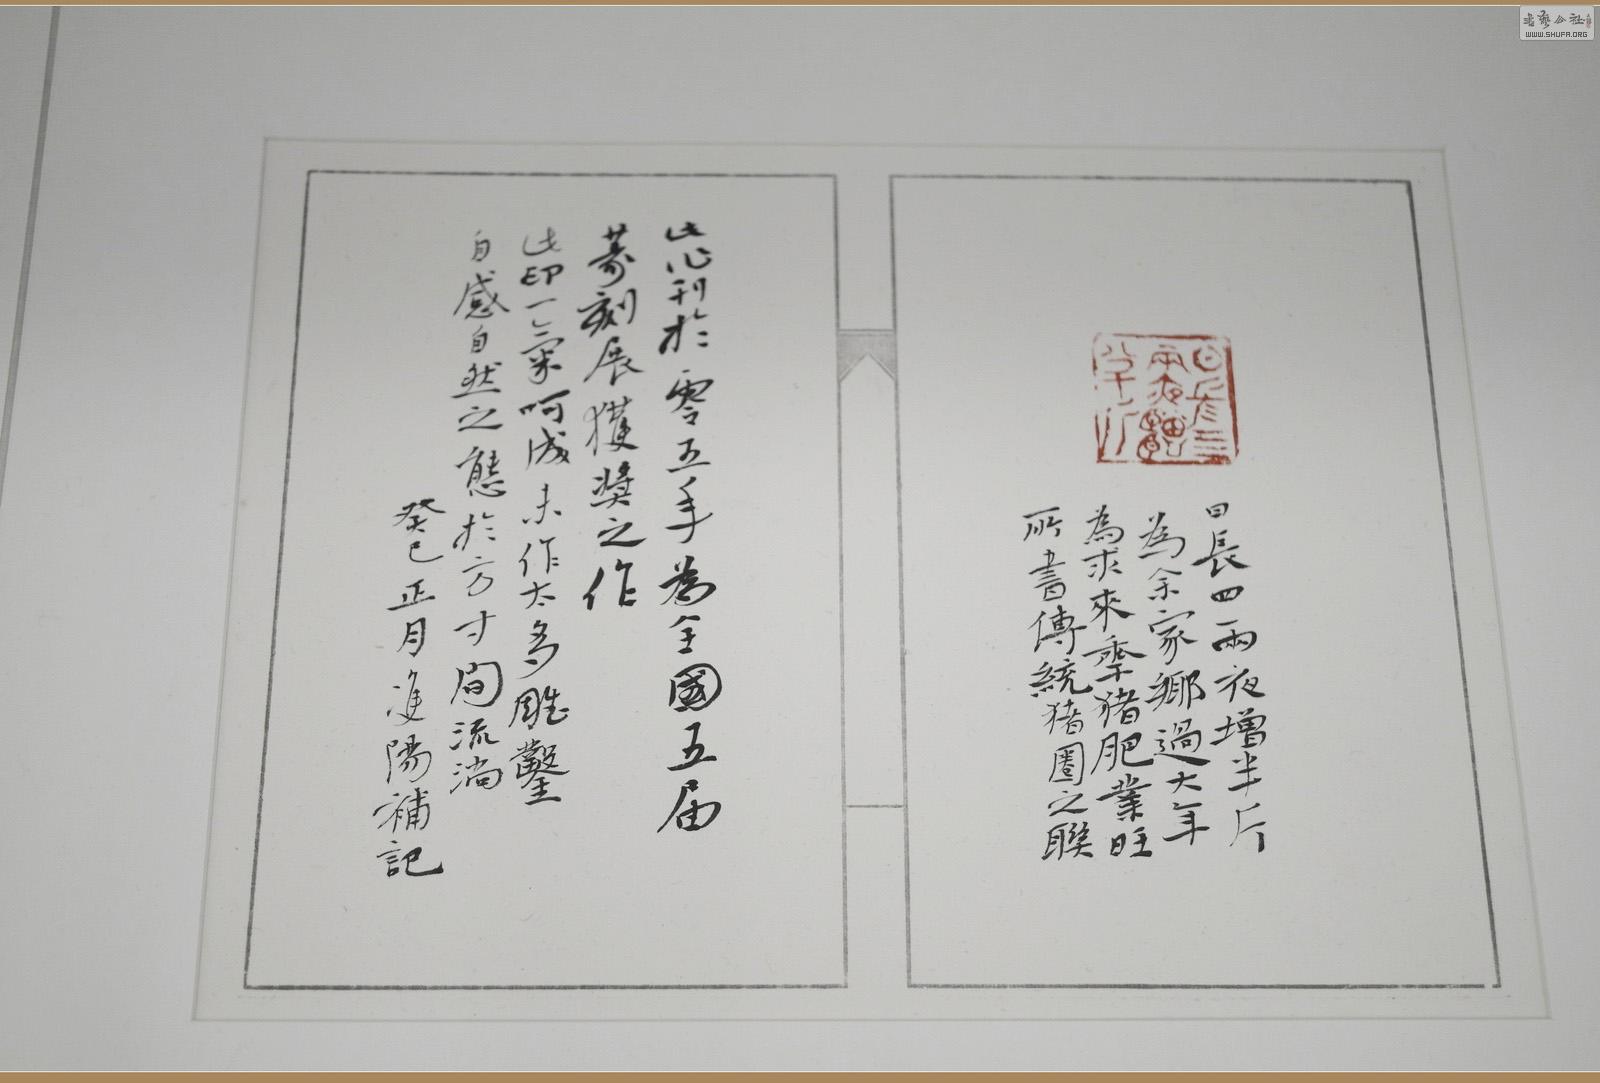 日長四兩夜增半斤
為余家鄉過大年
為求來季豬肥業旺
所書傳統豬圈之聯
此作刊於零五年為全國五屆
篆刻展獲獎之作
此印一氣呵成未作太多雕鑿
自感自然之態於方寸間流淌
癸巳正月淮陽補記
書藝公社
WWW.SHUFA.ORG